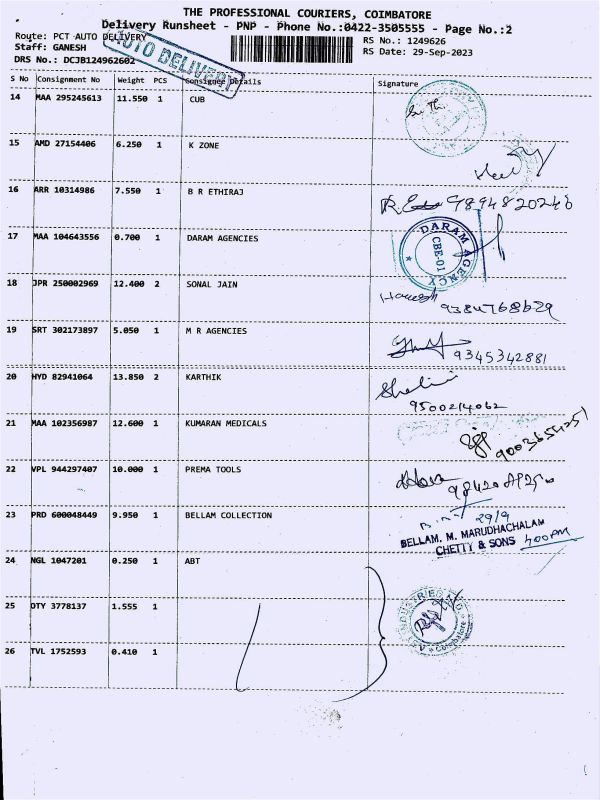 THE PROFESSIONAL COURIERS, COIMBATORE
Delivery Runsheet - PNP - Phone No.:0422-3505555 - Page No.:2
Route: PCT AUTO DELIVERY
RS No.: 1249626
Staff: GANESH
RS Date: 29-Sep-2023
DRS No.: DCJB124962602
AUTO DELIVERY
S No Consignment No Weight PCS Consignee Details Signature
14 MAA 295245613 11.550 1 CUB
15 AMD 27154406 6.250 1 K ZONE
16 ARR 10314986 7.550 1 B R ETHIRAJ
9894820246
17 MAA 104643556 0.700 1 DARAM AGENCIES
DARAM AGENCY
CBE-01
18 JPR 250002969 12.400 2 SONAL JAIN
9384768629
19 SRT 302173897 5.050 1 M R AGENCIES
9345342881
20 HYD 82941064 13.850 2 KARTHIK
9500214062
21 MAA 102356987 12.600 1 KUMARAN MEDICALS
9003654251
22 VPL 944297407 10.000 1 PREMA TOOLS
23 PRD 600048449 9.950 1 BELLAM COLLECTION
29/9
BELLAM. M. MARUDHACHALAM
CHETTY & SONS 4:00PM
24 NGL 1047201 0.250 1 ABT
25 OTY 3778137 1.555 1
26 TVL 1752593 0.410 1
Coimbatore